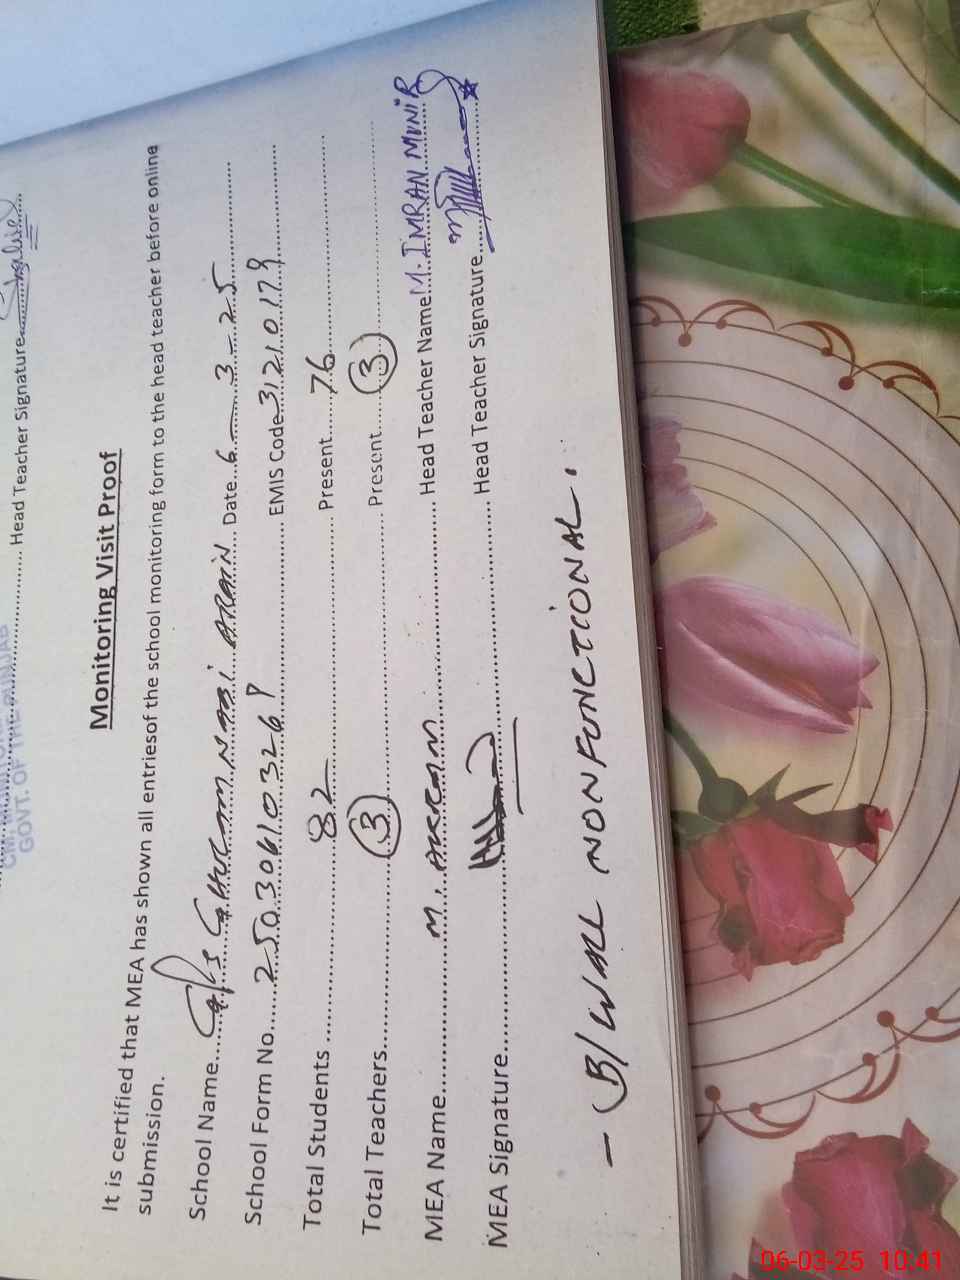 Head Teacher Signature
GOVT. OF THE PUNJAB
Monitoring Visit Proof
It is certified that MEA has shown all entriesof the school monitoring form to the head teacher before online
submission.
School Name....GPS GHULAM NABI ARAIN.. Date..6 - 3 - 25
School Form No....250306103268........ EMIS Code 31210179
Total Students ........82........ Present....76........
Total Teachers........3........ Present....3........
MEA Name........M. AKRAM........ Head Teacher Name M. IMRAN MUNIR
MEA Signature................ Head Teacher Signature........
- B/WALL NONFUNCTIONAL.
06-03-25 10:41